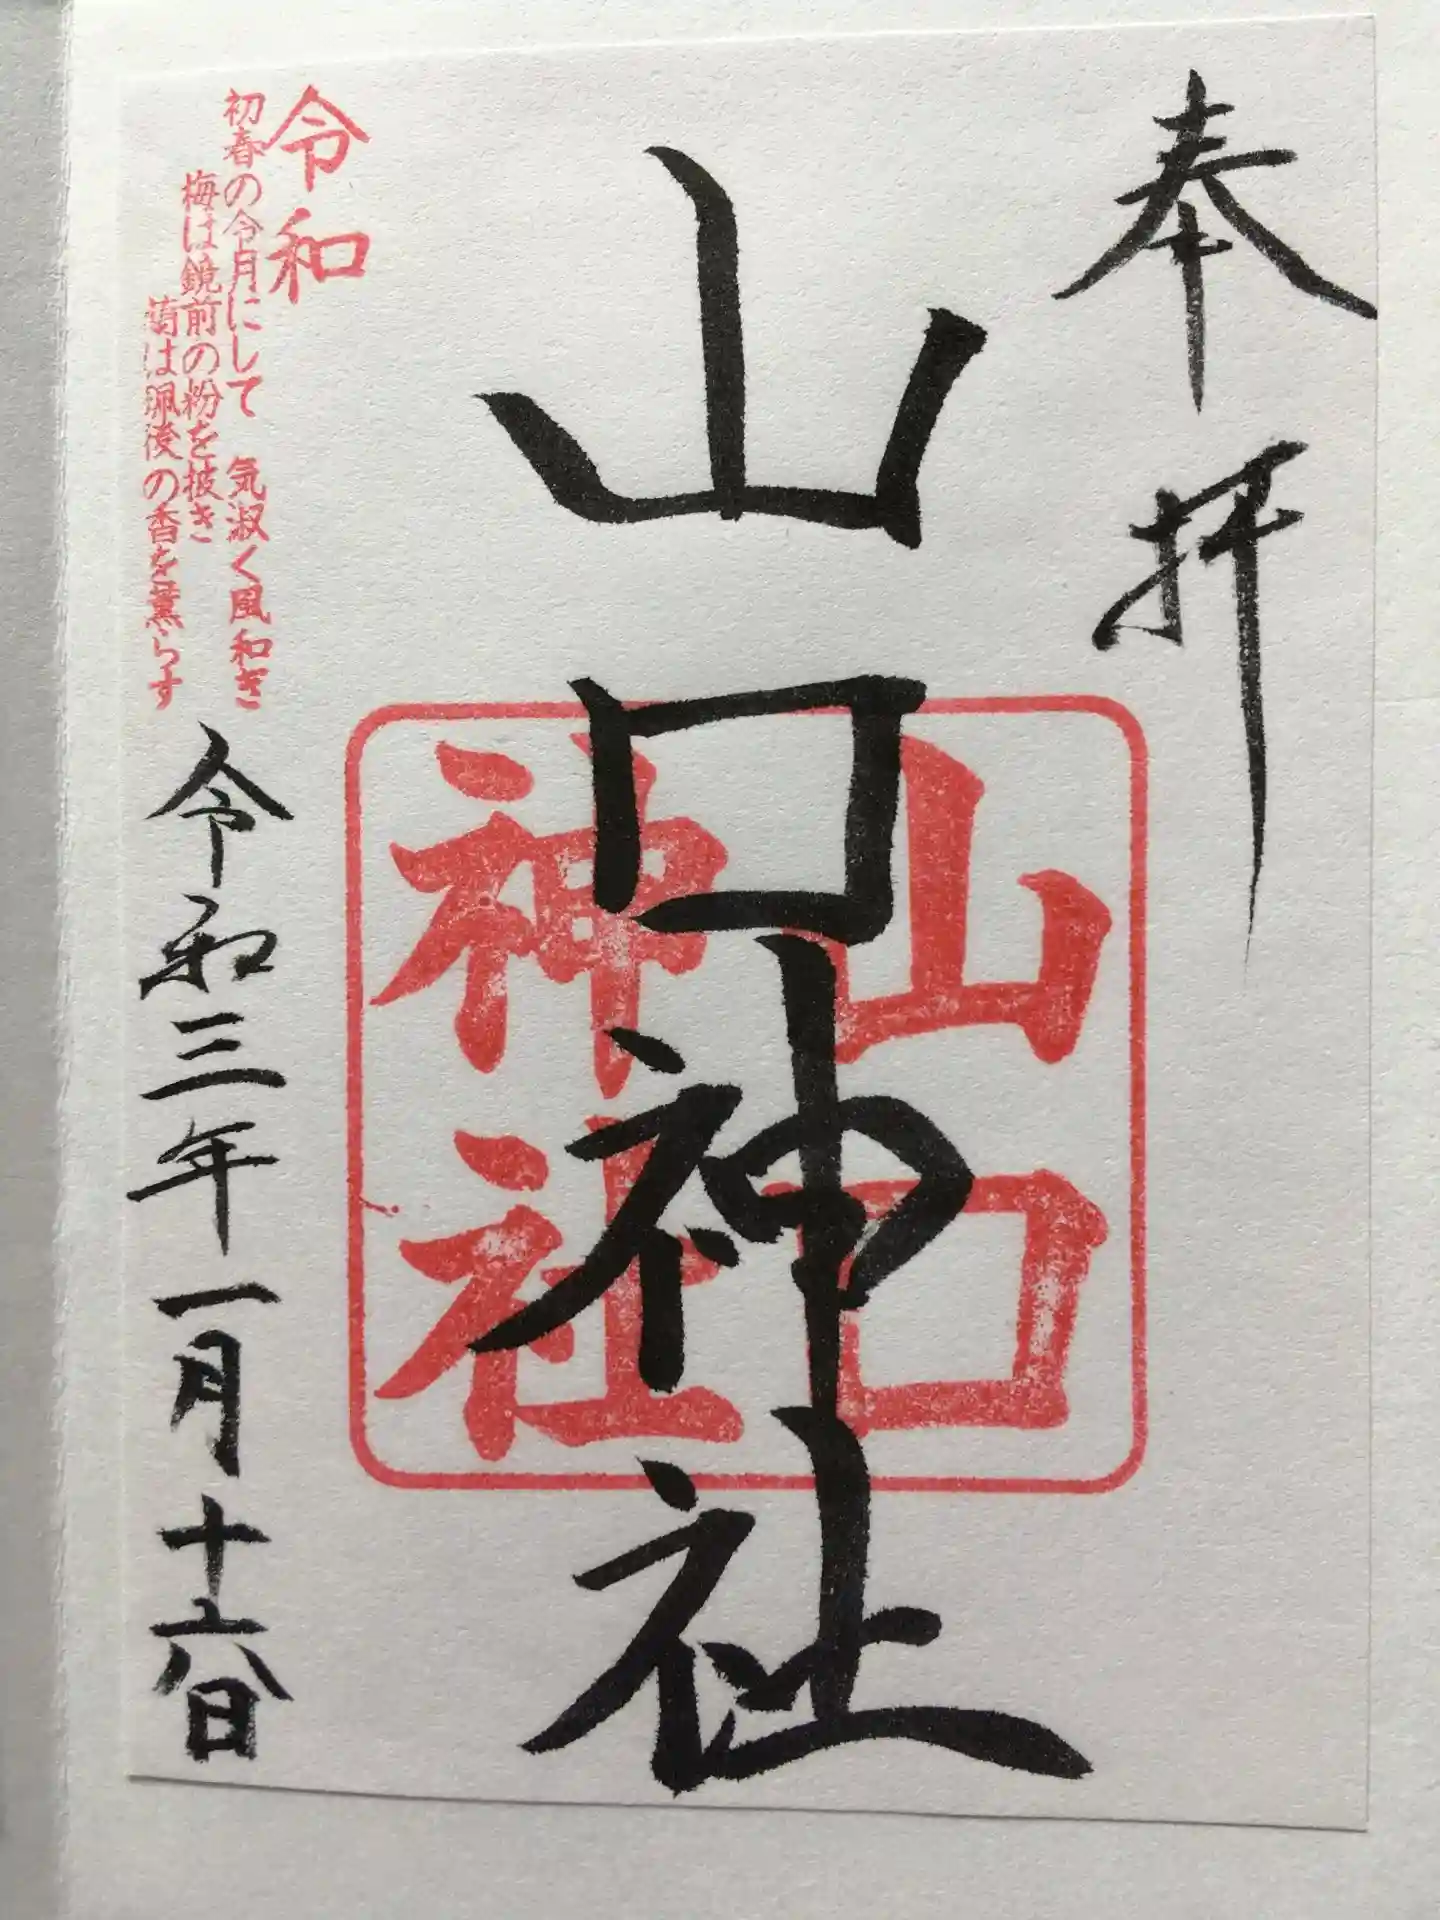 奉拝
山口神社
山口
神社
令和
初春の令月にして 気淑く風和ぎ
梅は鏡前の粉を披き
蘭は珮後の香を薫らす
令和三年一月十六日